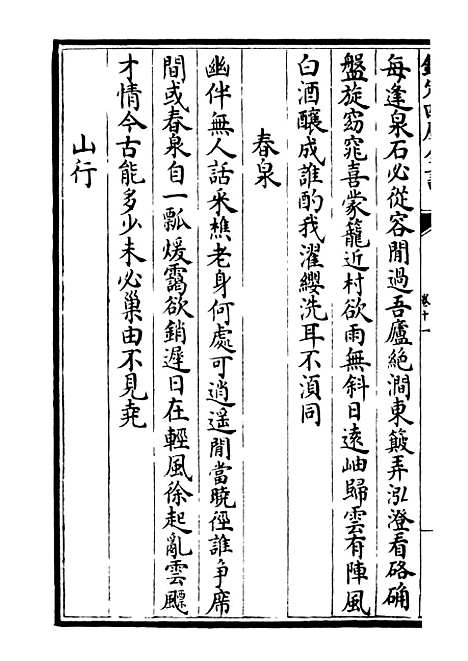 欽定四庫全書
卷十一
每逢泉石必從容閒過吾廬絶澗東簸弄泓澄看硌确
盤旋窈窕喜蒙籠近村欲雨無斜日逺岫歸雲有陣風
白酒釀成誰酌我濯纓洗耳不湏同
春泉
幽伴無人話采樵老身何處可逍遥閒當曉徑誰争席
間或春泉自一瓢煖靄欲銷遲日在輕風徐起亂雲飃
才情今古能多少未必巢由不見堯
山行